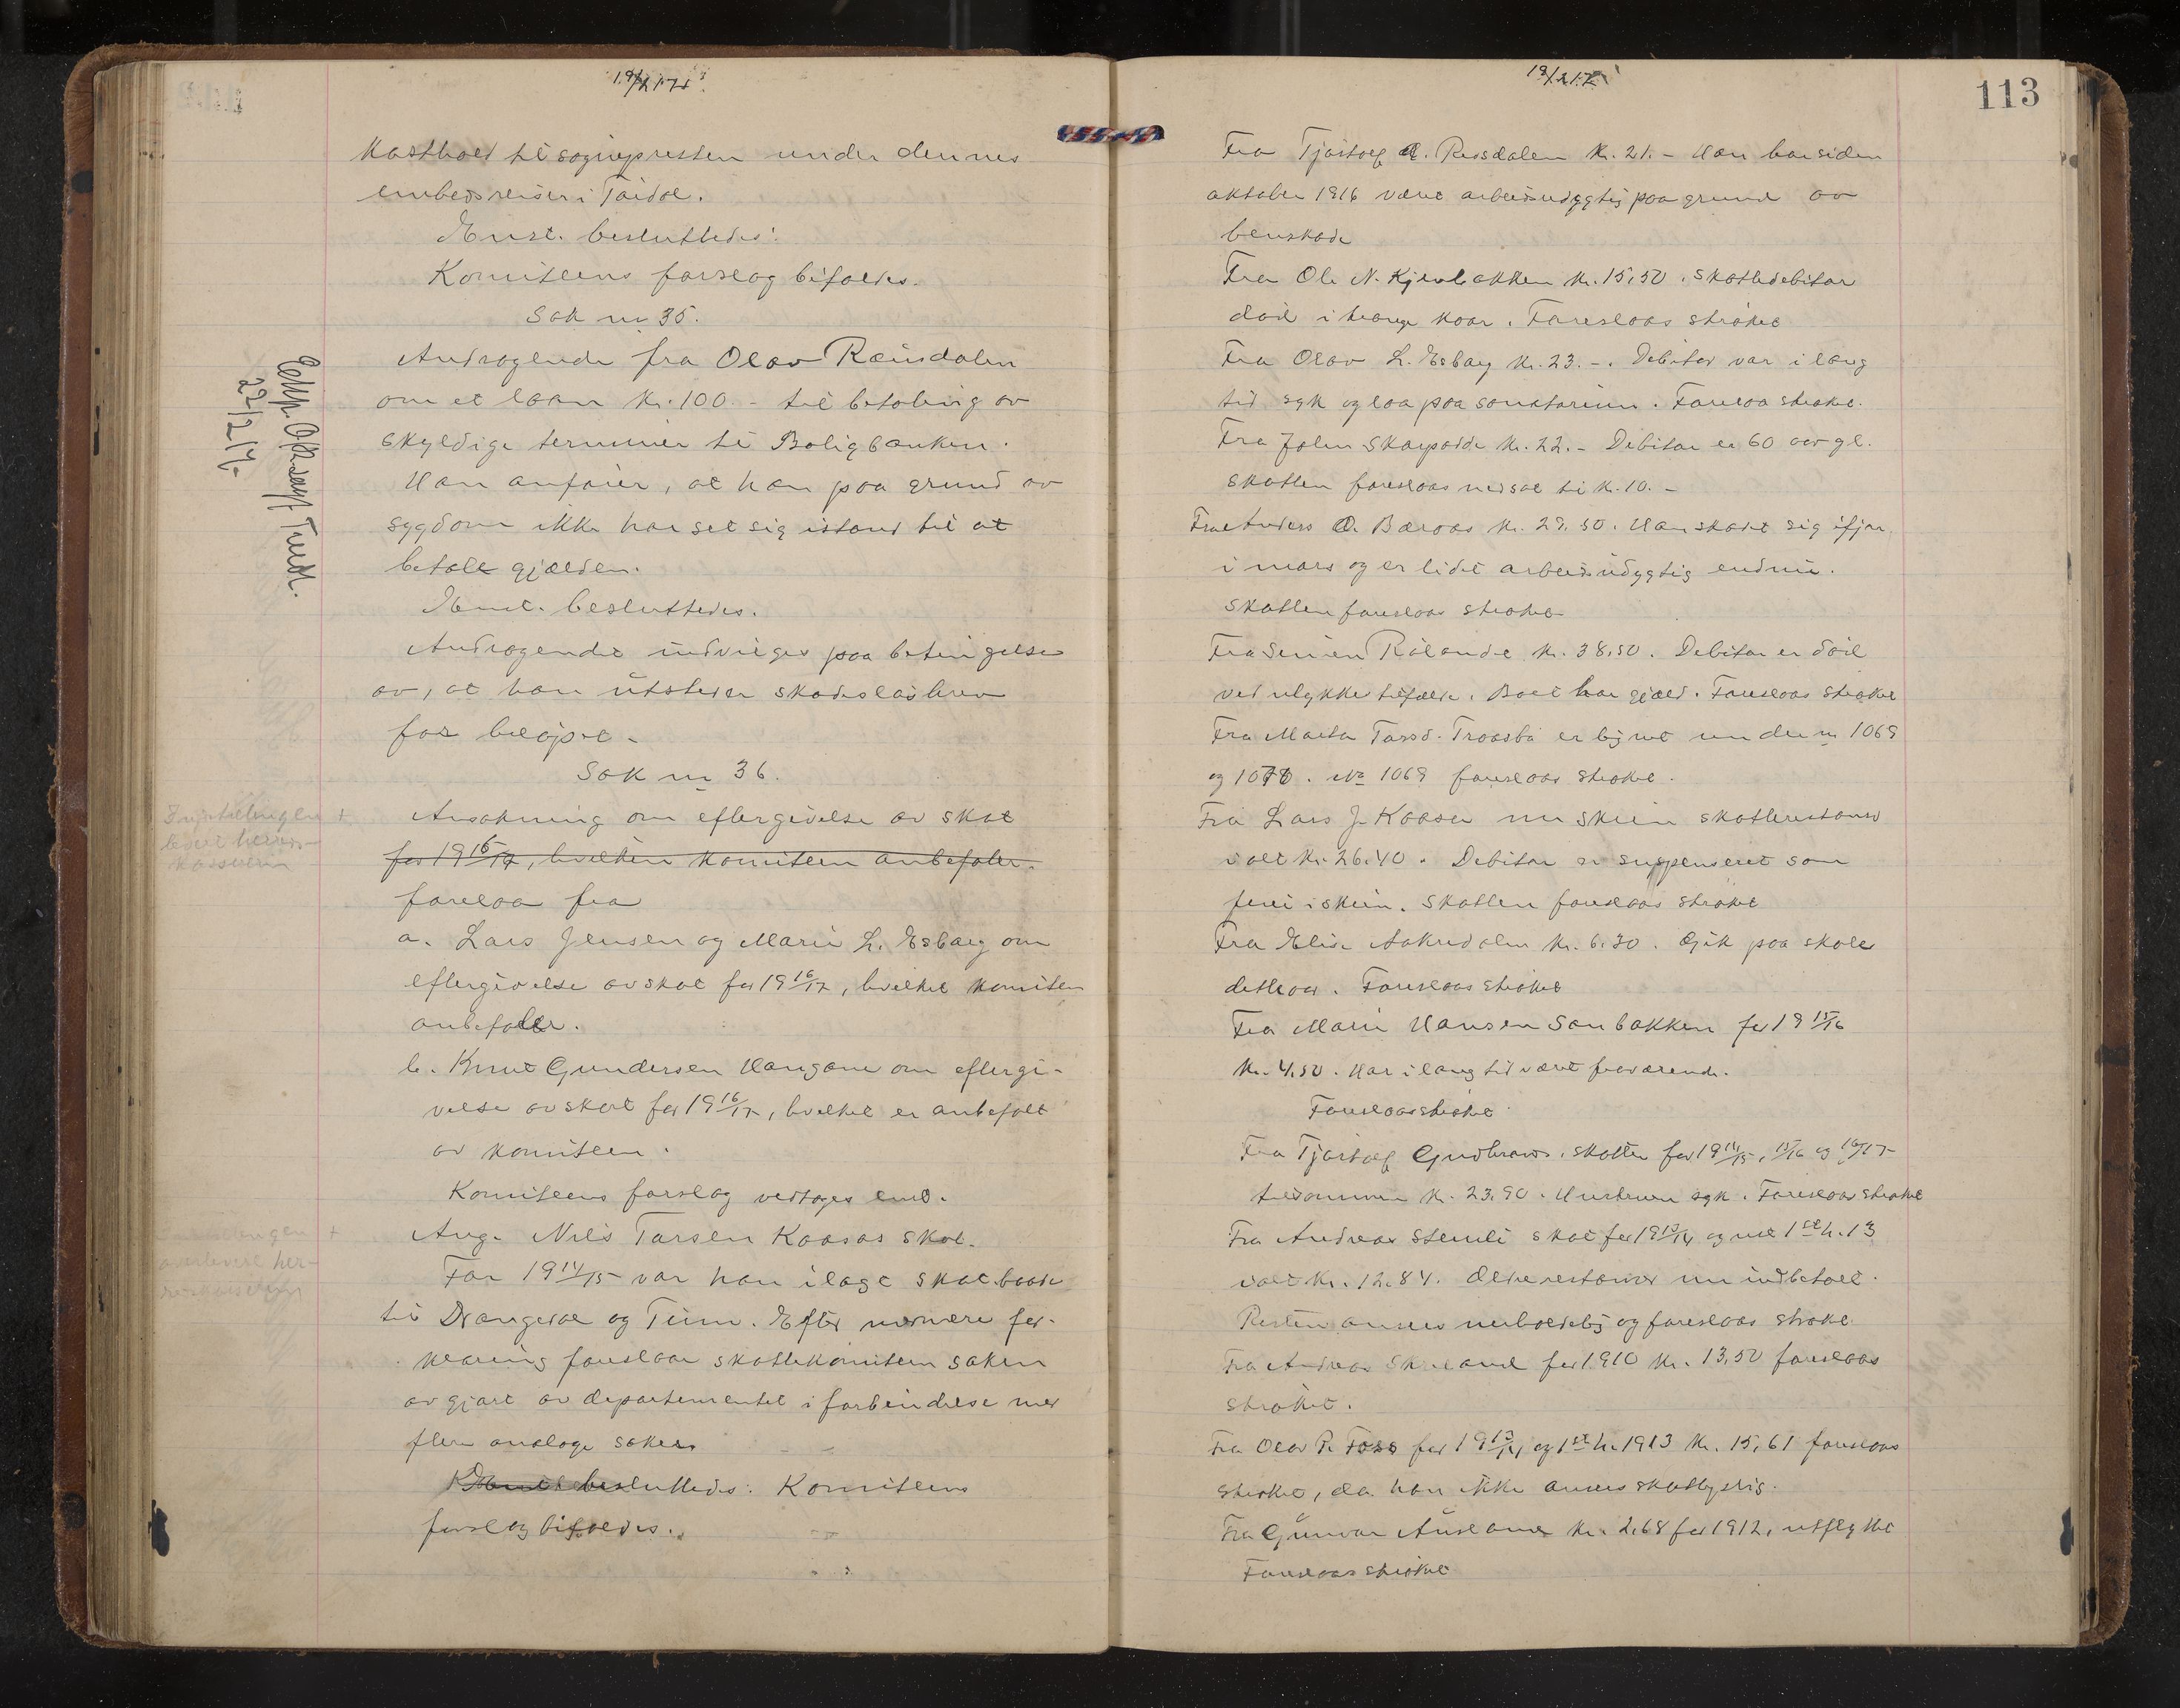 19/2 17
kosthold til sognepresten under dennes
embedsreiser i Tørdal.
Enst. besluttedes:
Komiteens forslag bifaldes.
Sak nr 35.
Andragende fra Olav Reinsdalen
om et laan kr. 100.- til betaling av
skyldige terminer til Boligbanken.
Han anfører, at han paa grund av
sygdom ikke har set sig istand til at
betale gjælden.
Enst. besluttedes.
Andragendet indvilges paa betingelse
av, at han utsteder skadesløsbrev
for beløpet.
Sak nr 36.
Ansøkning om eftergivelse av skat
for 19 16/17, hvilken komiteen anbefaler.
foreslaa fra
a. Lars Jensen og Marie L. Esborg om
eftergivelse av skat for 19 16/17, hvilket komiteen
anbefaler.
b. Knut Gundersen Haugane om eftergi-
velse av skat for 19 16/17, hvilket er anbefalt
av komiteen.
Komiteens forslag vedtages enst.
Ang. Nils Tarsen Kaasas skat.
For 19 14/15 var han ilagt skat baade
til Drangedal og Tinn. Efter nærmere for-
klaring foreslaar skattekomiteen saken
avgjort av departementet i forbindelse med
flere analoge saker
Enst. besluttedes: Komiteens
forslag bifaldes.
Eksp. Opsagt Tinn.
22/2 17.
Indstillingen
levert herreds-
kasserern
levert her-
redskassereren
19/2 17
113
Fra Tjøstolf A. Rossdalen kr. 21.- Han har siden
oktober 1916 været arbeidsudygtig paa grund av
benskade
Fra Ole N. Kjerrbakken kr. 15,50. Skattedebitor
død i trange kaar. Foreslaas strøket
Fra Olav L. Esborg kr. 23.-. Debitor var i lang
tid syk og laa paa sanatorium. Foreslaa strøket.
Fra John Skarpodde kr. 22.- Debitor er 60 aar gl.
Skatten foreslaas nedsat til kr. 10.-
Fra Anders O. Bæraas kr. 29.50. Han skadet sig ifjor
i mars og er lidet arbeidsudygtig endnu.
Skatten foreslaas strøket
Fra Simen Rølandt kr. 38.50. Debitor er død
ved ulykkestilfælde. Boet har gjæld. Foreslaas strøket
Fra Marta Tarsd. Traasbø er lignet under nr 1069
og 1070. No 1069 foreslaas strøket.
Fra Lars J. Kaasa nu Skien skatterestanse
ialt kr. 26.40. Debitor er suspenseret som
feier i Skien. Skatten foreslaas strøket
Fra Elise Aakredalen kr. 6.30. Gik paa skole
dette aar. Foreslaas strøket
Fra Marie Hansen Sanbakken for 19 15/16
kr. 4.50. Har i lang tid været fraværende.
Foreslaas strøket
Fra Tjøstolf Gudbrands. skatter for 19 14/15, 15/16 og 16/17
tilsammen kr. 23.90. Hustruen syk. Foreslaas strøket
Fra Andreas Stemli skat for 19 13/14 og rest 1ste h. 13
ialt kr. 12.84. Ældre restanser nu indbetalt.
Resten ansees uerholdelig og foreslaas strøket
Fra Andreas Skreland for 1910 kr. 13.50 foreslaas
strøket.
Fra Olav P. Foss for 19 13/14 og 1ste h. 1913 kr. 15.61 foreslaas
strøket, da han ikke ansees skattepligtig.
Fra Gunvor Ausland kr. 2.68 for 1912, utflyttet
Foreslaas strøket